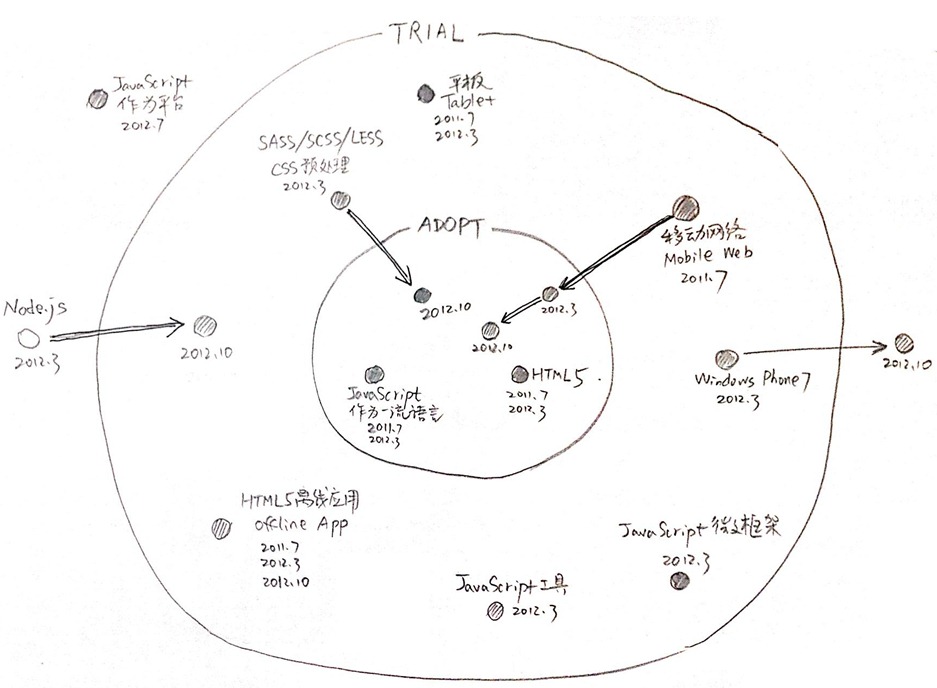 TRIAL
JavaScript
作为平台
2012.7
平板
Tablet
2011.7
2012.3
SASS/SCSS/LESS
CSS预处理
2012.3
ADOPT
移动网络
Mobile Web
2011.7
Node.js
2012.3
2012.10
2012.10
2012.3
2012.10
Windows Phone7
2012.3
2012.10
JavaScript
作为一流语言
2011.7
2012.3
HTML5
2011.7
2012.3
HTML5离线应用
offline App
2011.7
2012.3
2012.10
JavaScript微框架
2012.3
JavaScript工具
2012.3